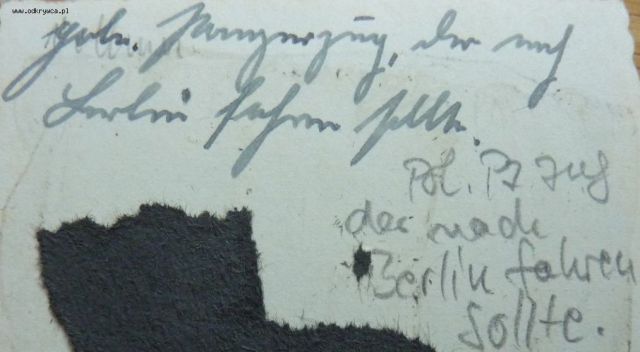 www.odkrywca.pl
poln. Panzerzug, der nach
Berlin fahren sollte.
Pol. Pz Zug
der nach
Berlin fahren
sollte.